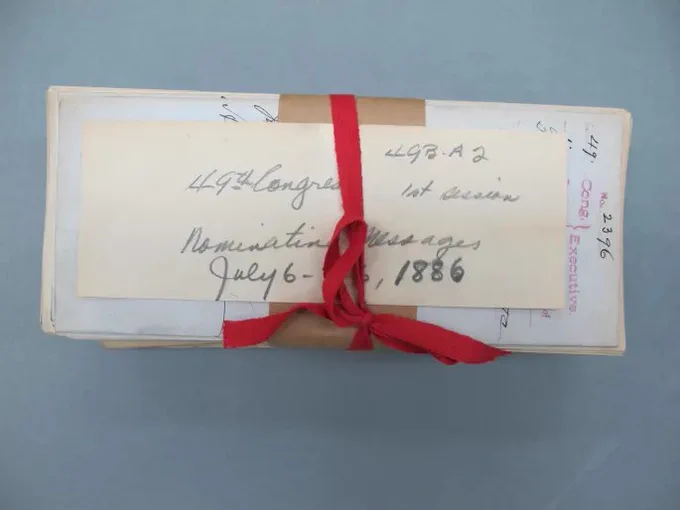 49B-A2
49th Congres
1st session
Nominatin Messages
July 6- 6, 1886
49' Cong.
Executive.
No. 2396